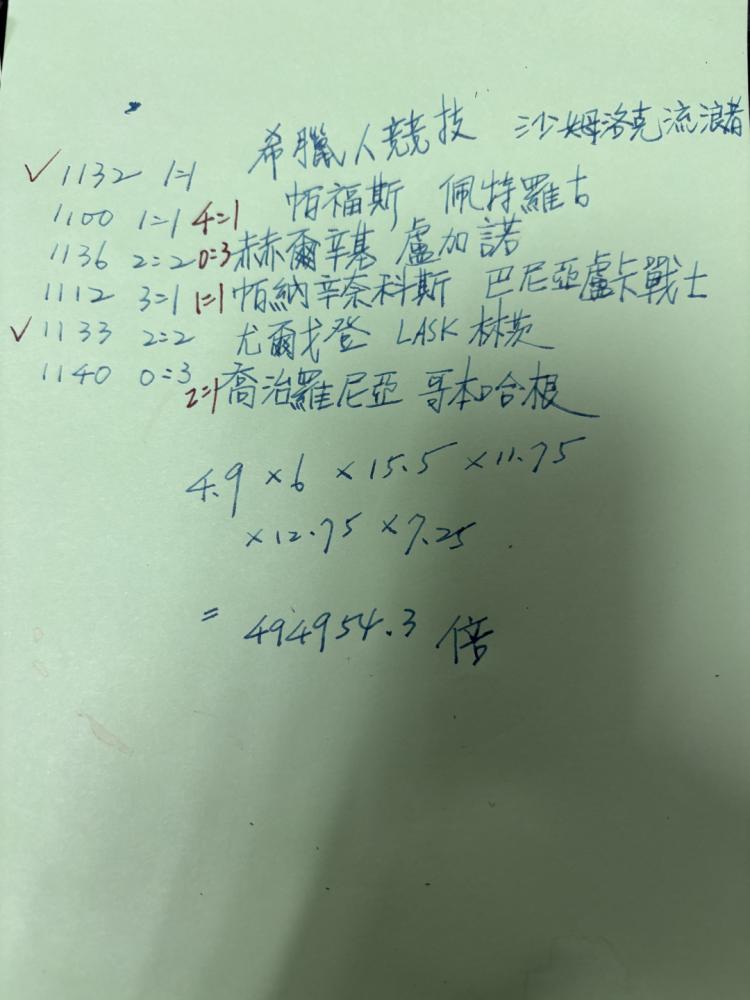 希臘人競技 沙姆洛克流浪者
✓1132 1=1
1100 1=1 4=1 帕福斯 佩特羅古
1136 2=2 0=3 赫爾辛基 盧加諾
1112 3=1 1=1 帕納辛奈科斯 巴尼亞盧卡戰士
✓1133 2=2 尤爾戈登 LASK 林茨
1140 0=3 2=1 喬治羅尼亞 哥本哈根
4.9 × 6 × 15.5 × 11.75
× 12.75 × 7.25
= 494954.3 倍